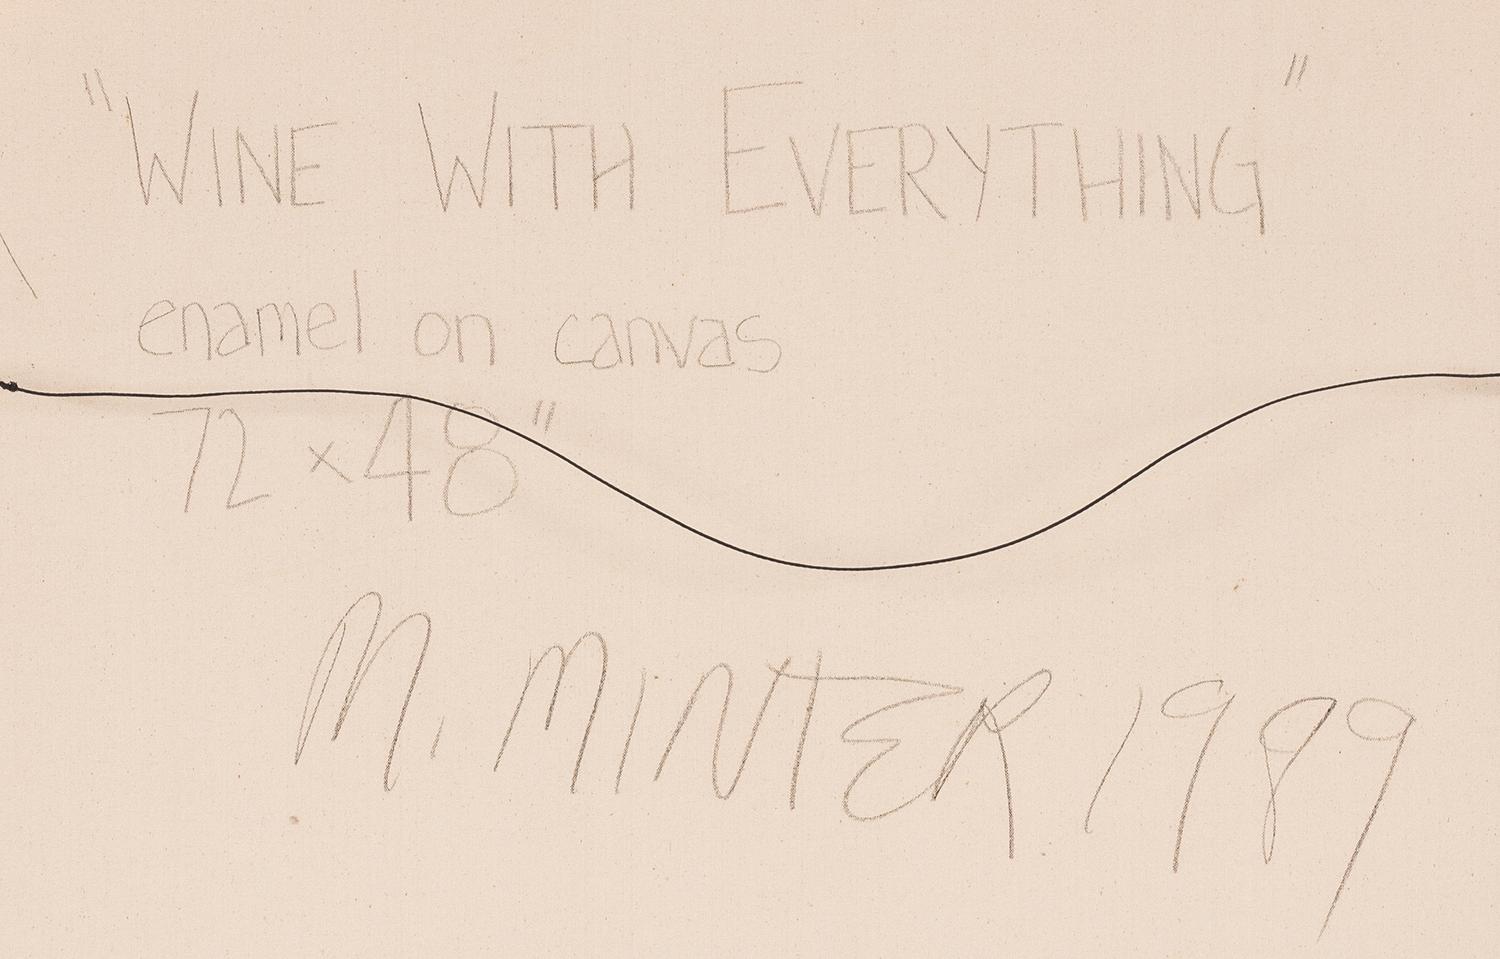 "WINE WITH EVERYTHING"
enamel on canvas
72 x 48"
M. MINTER 1989